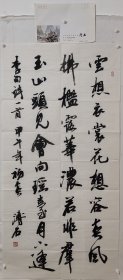 雲想衣裳花想容春風
拂檻露華濃若非群
玉山頭見會向瑤臺月下逢
李白詩一首 甲午年初春